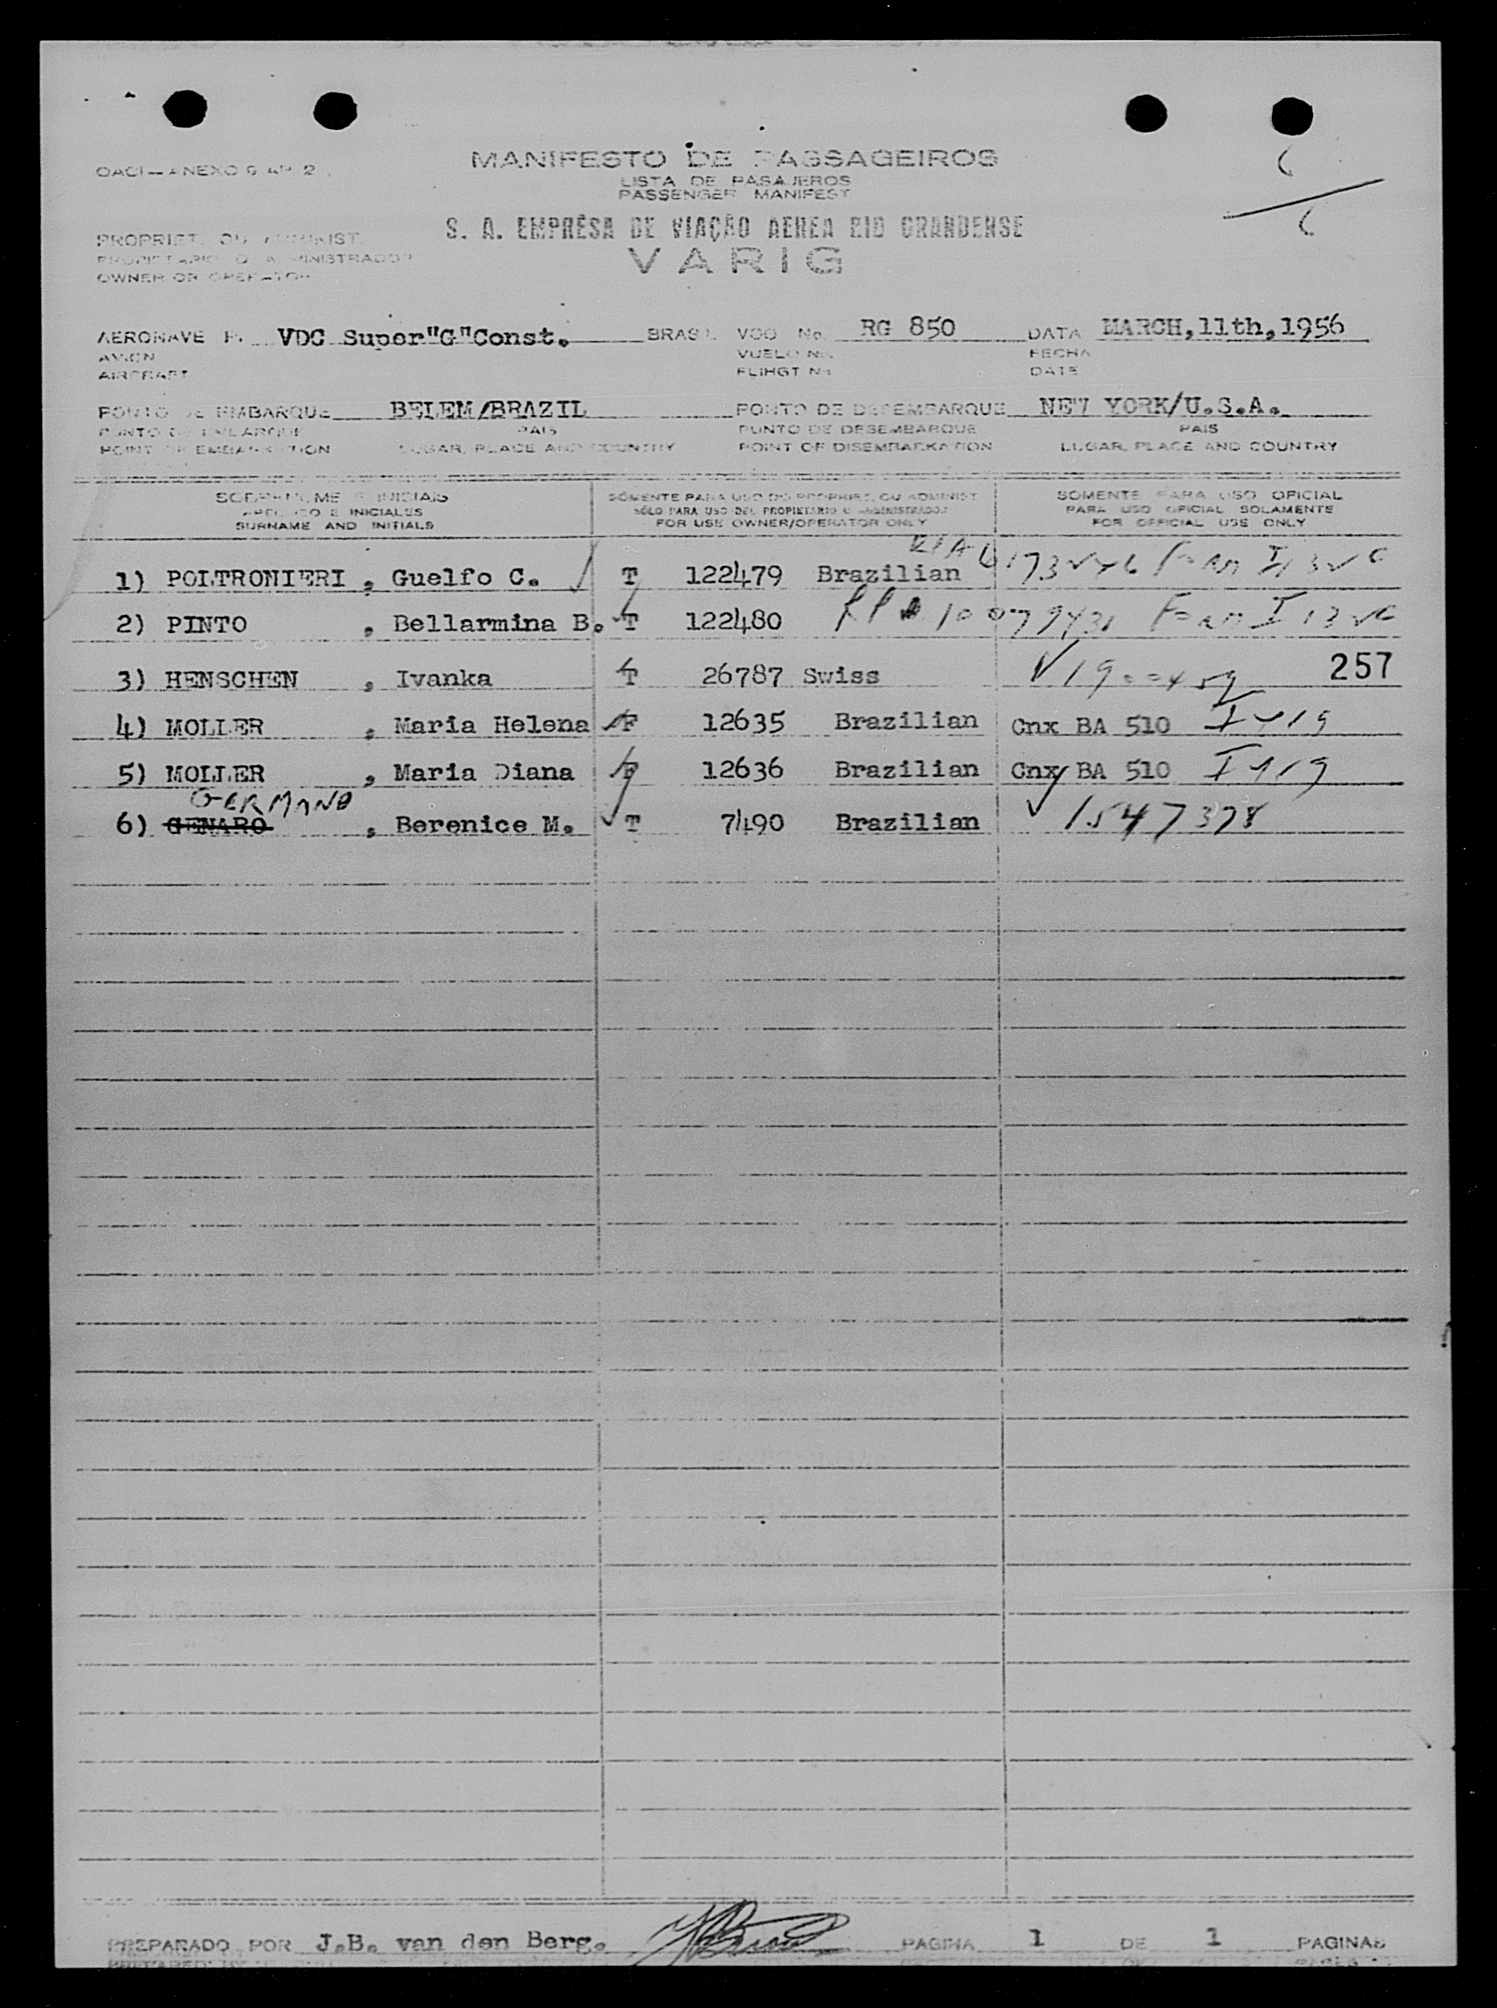 MANIFESTO DE PASSAGEIROS
LISTA DE PASAJEROS
PASSENGER MANIFEST
OACI - ANEXO 9 AP 2
6
6
S. A. EMPRÊSA DE VIAÇÃO AEREA RIO GRANDENSE
VARIG
OWNER OR OPERATOR
AERONAVE VDC Super"G"Const. BRASIL VOO No. RG 850 DATA MARCH,11th,1956
AVION VUELO No. FECHA
AIRCRAFT FLIHGT No. DATE
PONTO DE EMBARQUE BELEM/BRAZIL PONTO DE DESEMBARQUE NEW YORK/U.S.A.
PUNTO DE EMBARQUE PAIS PUNTO DE DESEMBARQUE PAIS
POINT OF EMBARKATION LUGAR, PLACE AND COUNTRY POINT OF DISEMBARKATION LUGAR, PLACE AND COUNTRY
SOBRENOME E INICIAIS SÓMENTE PARA USO DO PROPRIET. OU ADMINIST. SOMENTE PARA USO OFICIAL
APELLIDO E INICIALES SÓLO PARA USO DEL PROPIETARIO O ADMINISTRADOR PARA USO OFICIAL SOLAMENTE
SURNAME AND INITIALS FOR USE OWNER/OPERATOR ONLY FOR OFFICIAL USE ONLY
1) POLTRONIERI , Guelfo C. T 122479 Brazilian
2) PINTO , Bellarmina B. T 122480
3) HENSCHEN , Ivanka T 26787 Swiss 257
4) MOLLER , Maria Helena 12635 Brazilian Cnx BA 510
5) MOLLER , Maria Diana 12636 Brazilian Cnx BA 510
GERMANO
6) GENARO , Berenice M. T 7490 Brazilian 1547378
PREPARADO POR J.B. van den Berg. PAGINA 1 DE 1 PAGINAS